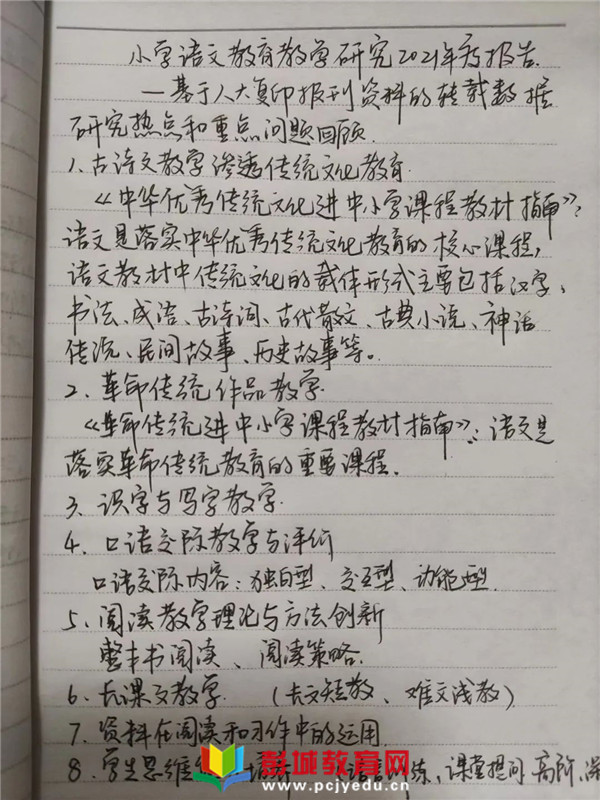 小学语文教育教学研究2021年度报告
—基于人大复印报刊资料的转载数据
研究热点和重点问题回顾
1、古诗文教学渗透传统文化教育
《中华优秀传统文化进中小学课程教材指南》:
语文是落实中华优秀传统文化教育的核心课程,
语文教材中传统文化的载体形式主要包括汉字、
书法、成语、古诗词、古代散文、古典小说、神话
传说、民间故事、历史故事等。
2、革命传统作品教学
《革命传统进中小学课程教材指南》:语文是
落实革命传统教育的重要课程.
3、识字与写字教学
4、口语交际教学与评价
口语交际内容:独白型、交互型、功能型
5、阅读教学理论与方法创新
整本书阅读、阅读策略.
6、长课文教学 (长文短教、难文浅教)
7、资料在阅读和习作中的运用
8、学生思维 训练,课堂提问 高阶,深
彭城教育网
www.pcjyedu.cn